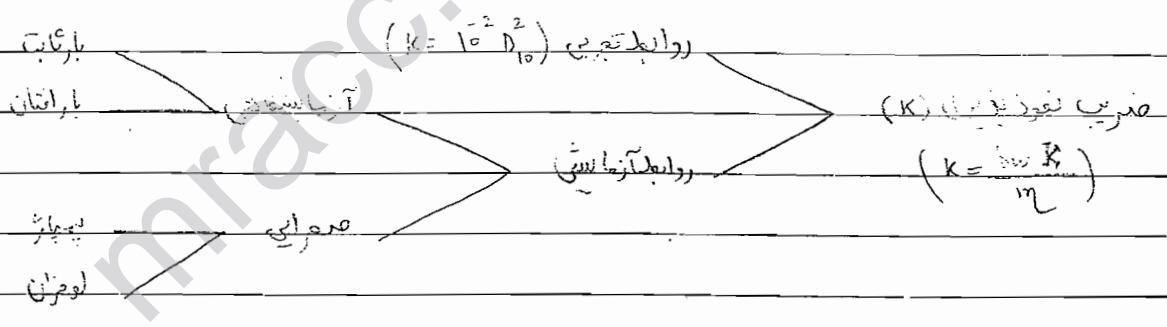 ضریب نفوذپذیری (K)
(K = γw K̄ / η)
روابط تجربی (K = 10⁻² D₁₀²)
روابط آزمایشی
آزمایشگاهی
بار ثابت
بار افتان
صحرایی
پمپاژ
لوفران
mracc.